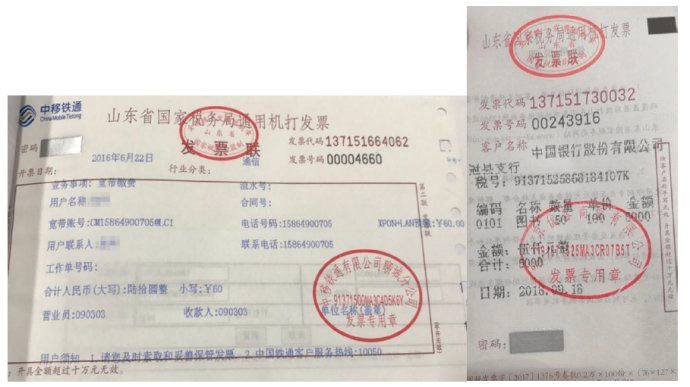 中移铁通
China Mobile Tietong
山东省国家税务局通用机打发票
发票联
发票代码137151664062
发票号码00004660
密码
开票日期:
2016年6月22日
行业分类:
通信
业务事项:宽带缴费
流水号:
用户名称:
合同号:
宽带账号:
电话号码:15864900705
¥60.00
用户联系人:
联系电话:15864900705
工作单号码:
合计人民币(大写):陆拾圆整 小写:¥60
营业员:090303
收款人:090303
单位名称(盖章)
发票专用章
用户须知 1.请您及时索取和妥善保管发票 2.中国铁通客户服务热线:10050
开具金额超过十万元无效。
山东省国家税务局通用机打发票
发票联
发票代码137151730032
发票号码00243916
客户名称 中国银行股份有限公司
冠县支行
税号:
编码 名称 数量 单价 金额
0101 图书 50 100 5000
金额:伍仟元整
合计:5000
发票专用章
日期:2018.09.18
密码: